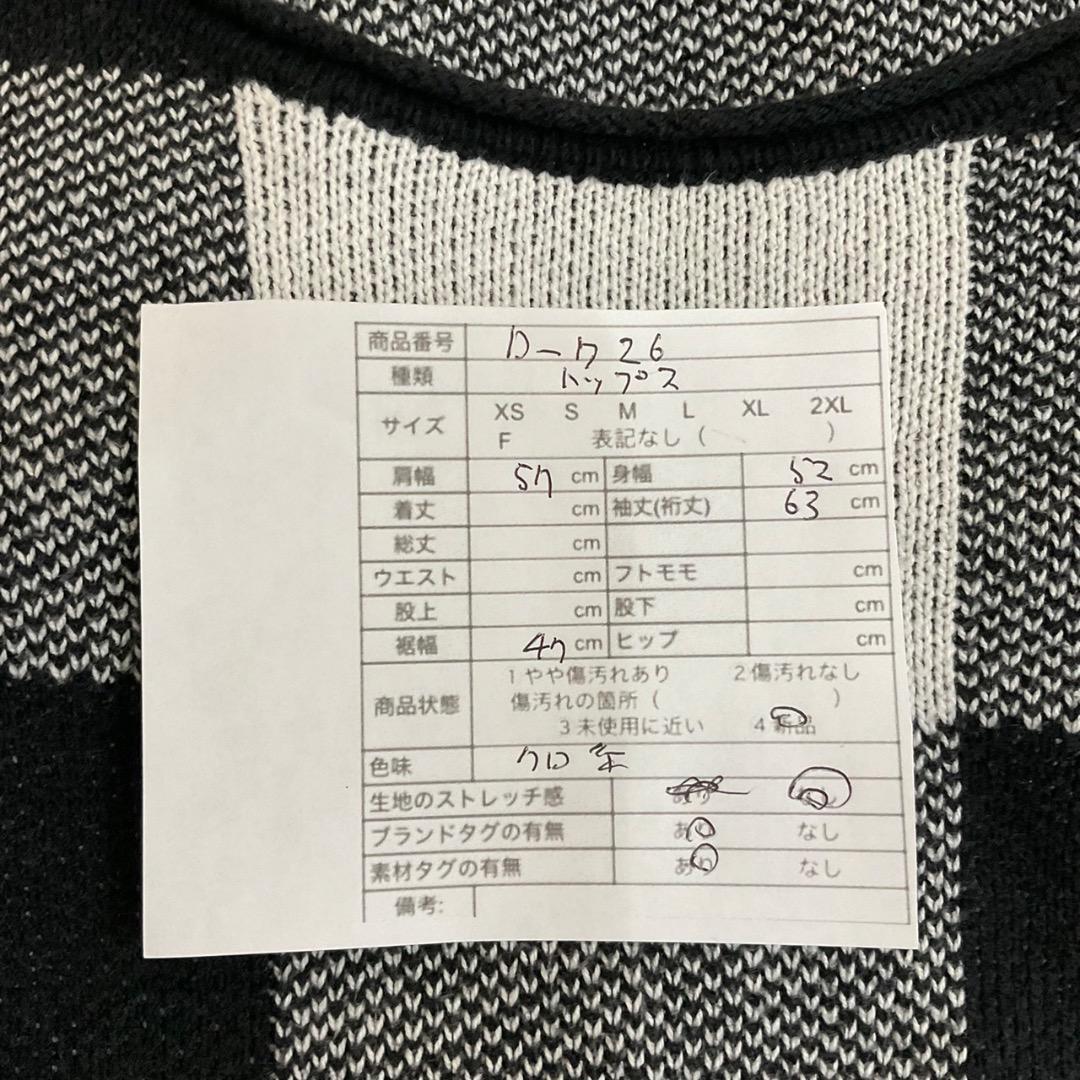 商品番号 D-ク26
種類 トップス
サイズ XS S M L XL 2XL
F 表記なし ( )
肩幅 57 cm 身幅 52 cm
着丈 cm 袖丈(裄丈) 63 cm
総丈 cm
ウエスト cm フトモモ cm
股上 cm 股下 cm
裾幅 47 cm ヒップ cm
1 やや傷汚れあり 2 傷汚れなし
商品状態 傷汚れの箇所 ( )
3 未使用に近い 4 新品
色味 クロ
生地のストレッチ感
ブランドタグの有無 あり なし
素材タグの有無 あり なし
備考: